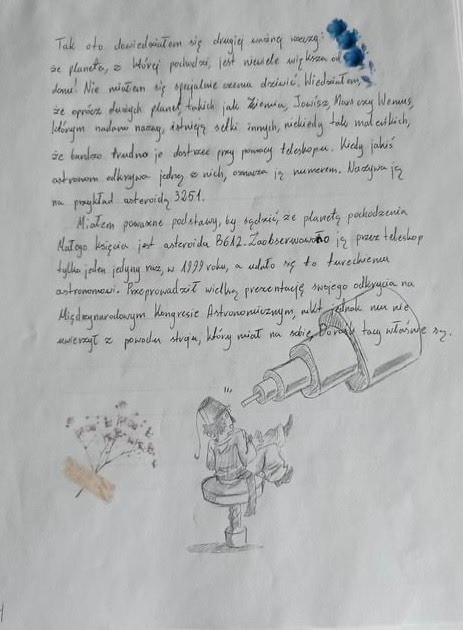 Tak oto dowiedziałem się drugiej ważnej rzeczy:
że planeta, z której pochodzi, jest niewiele większa od
domu! Nie miałem się specjalnie czemu dziwić. Wiedziałem,
że oprócz dużych planet, takich jak Ziemia, Jowisz, Mars czy Wenus,
którym nadano nazwy, istnieją setki innych, niekiedy tak maleńkich,
że bardzo trudno je dostrzec przy pomocy teleskopu. Kiedy jakiś
astronom odkrywa jedną z nich, oznacza ją numerem. Nazywa ją
na przykład asteroidą 3251.
Miałem poważne podstawy, by sądzić, że planetą pochodzenia
Małego Księcia jest asteroida B612. Zaobserwowano ją przez teleskop
tylko jeden jedyny raz, w 1999 roku, a udało się to tureckiemu
astronomowi. Przeprowadził wielką prezentację swojego odkrycia na
Międzynarodowym Kongresie Astronomicznym, nikt jednak mu nie
uwierzył z powodu stroju, który miał na sobie. Dorośli tacy właśnie są.